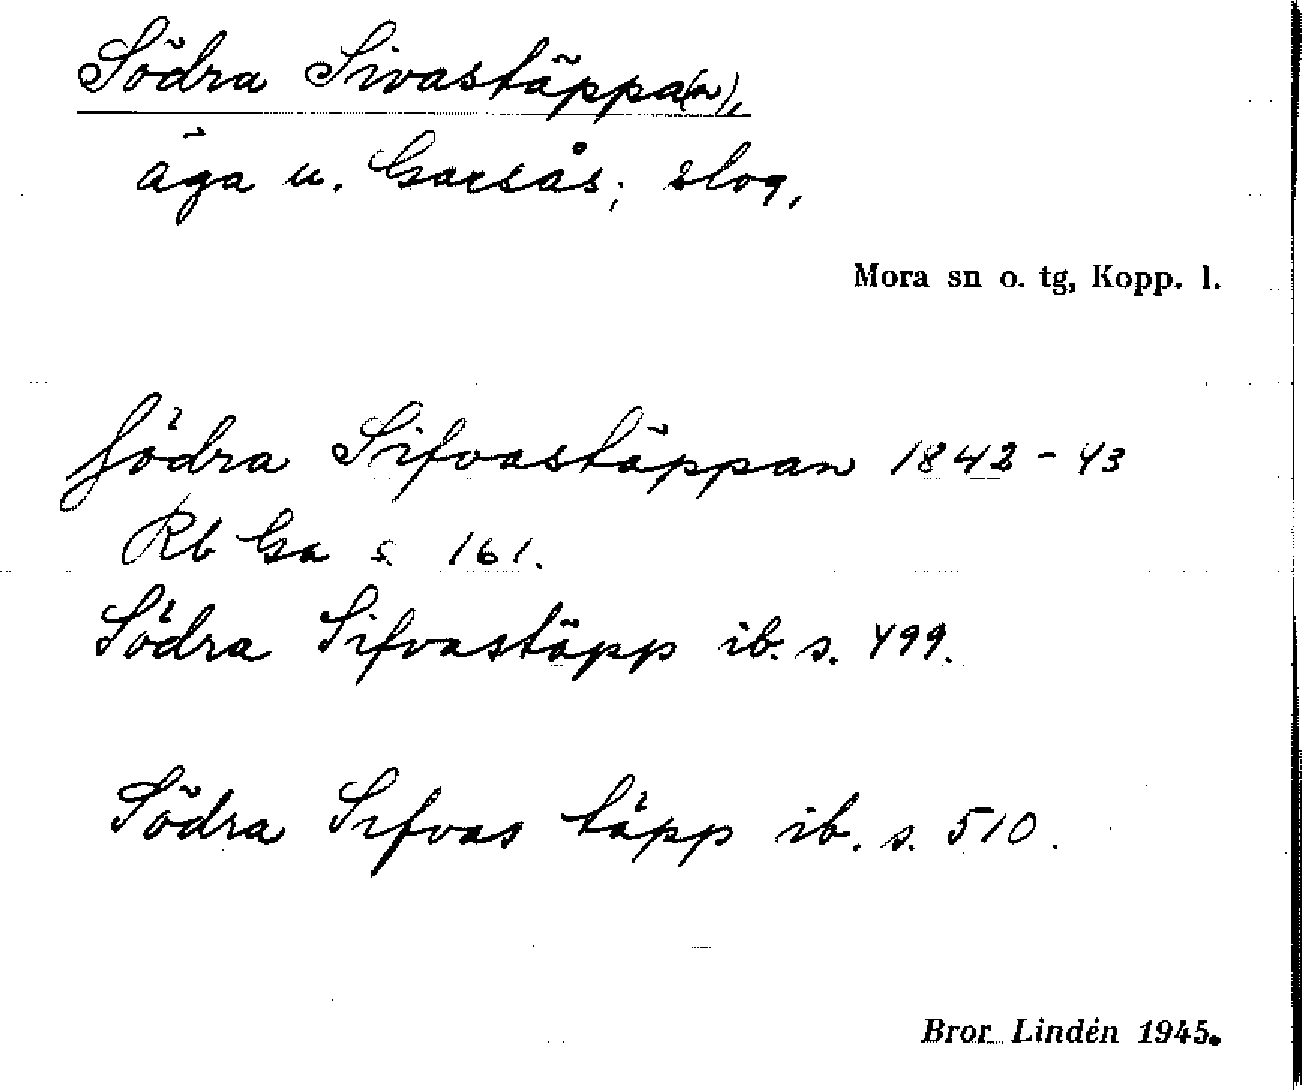 Södra Sivastäppa(n),
äga u. Garsås; slog,
Mora sn o. tg, Kopp. l.
Södra Sifvastäppan 1842-43
Rb Ga s. 161.
Södra Sifvastäpp ib. s. 499.
Södra Sifvas täpp ib. s. 510.
Bror Lindén 1945.